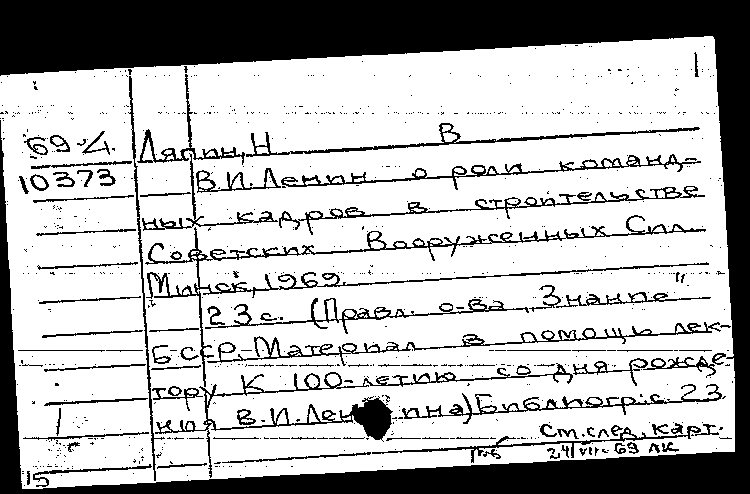 69-4. Ляпин, Н В
10373 В.И. Ленин о роли команд-
ных кадров в строительстве
Советских Вооруженных Сил.
Минск, 1969.
23 с. (Правл. о-ва „Знание"
БССР. Материал в помощь лек-
тору. К 100-летию со дня рожде-
ния В.И. Ленина) Библиогр: с. 23
См. след. карт.
24/VII-69 ЛК
15